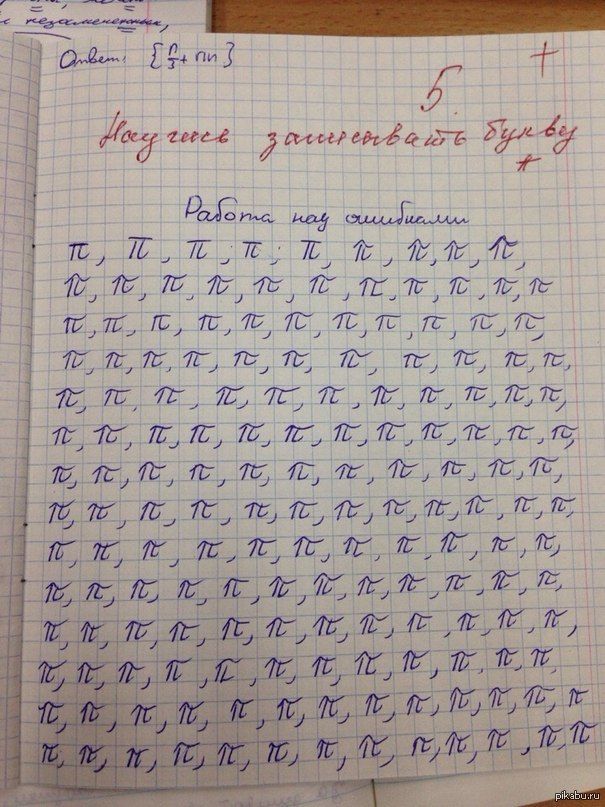 незамененных,
Ответ: {п/3 + пn}
5. +
Научись записывать букву
π
Работа над ошибками
π, π, π, π, π, π, π, π, π,
π, π, π, π, π, π, π, π, π, π, π
π, π, π, π, π, π, π, π, π, π, π,
π, π, π, π, π, π, π, π, π, π, π,
π, π, π, π, π, π, π, π, π, π, π,
π, π, π, π, π, π, π, π, π, π, π, π,
π, π, π, π, π, π, π, π, π, π, π,
π, π, π, π, π, π, π, π, π, π, π, π,
π, π, π, π, π, π, π, π, π, π, π,
π, π, π, π, π, π, π, π, π, π, π, π,
π, π, π, π, π, π, π, π, π, π, π, π,
π, π, π, π, π, π, π, π, π, π, π, π,
π, π, π, π, π, π, π, π, π, π, π, π, π
π, π, π, π, π, π, π, π, π, π, π, π, π
pikabu.ru